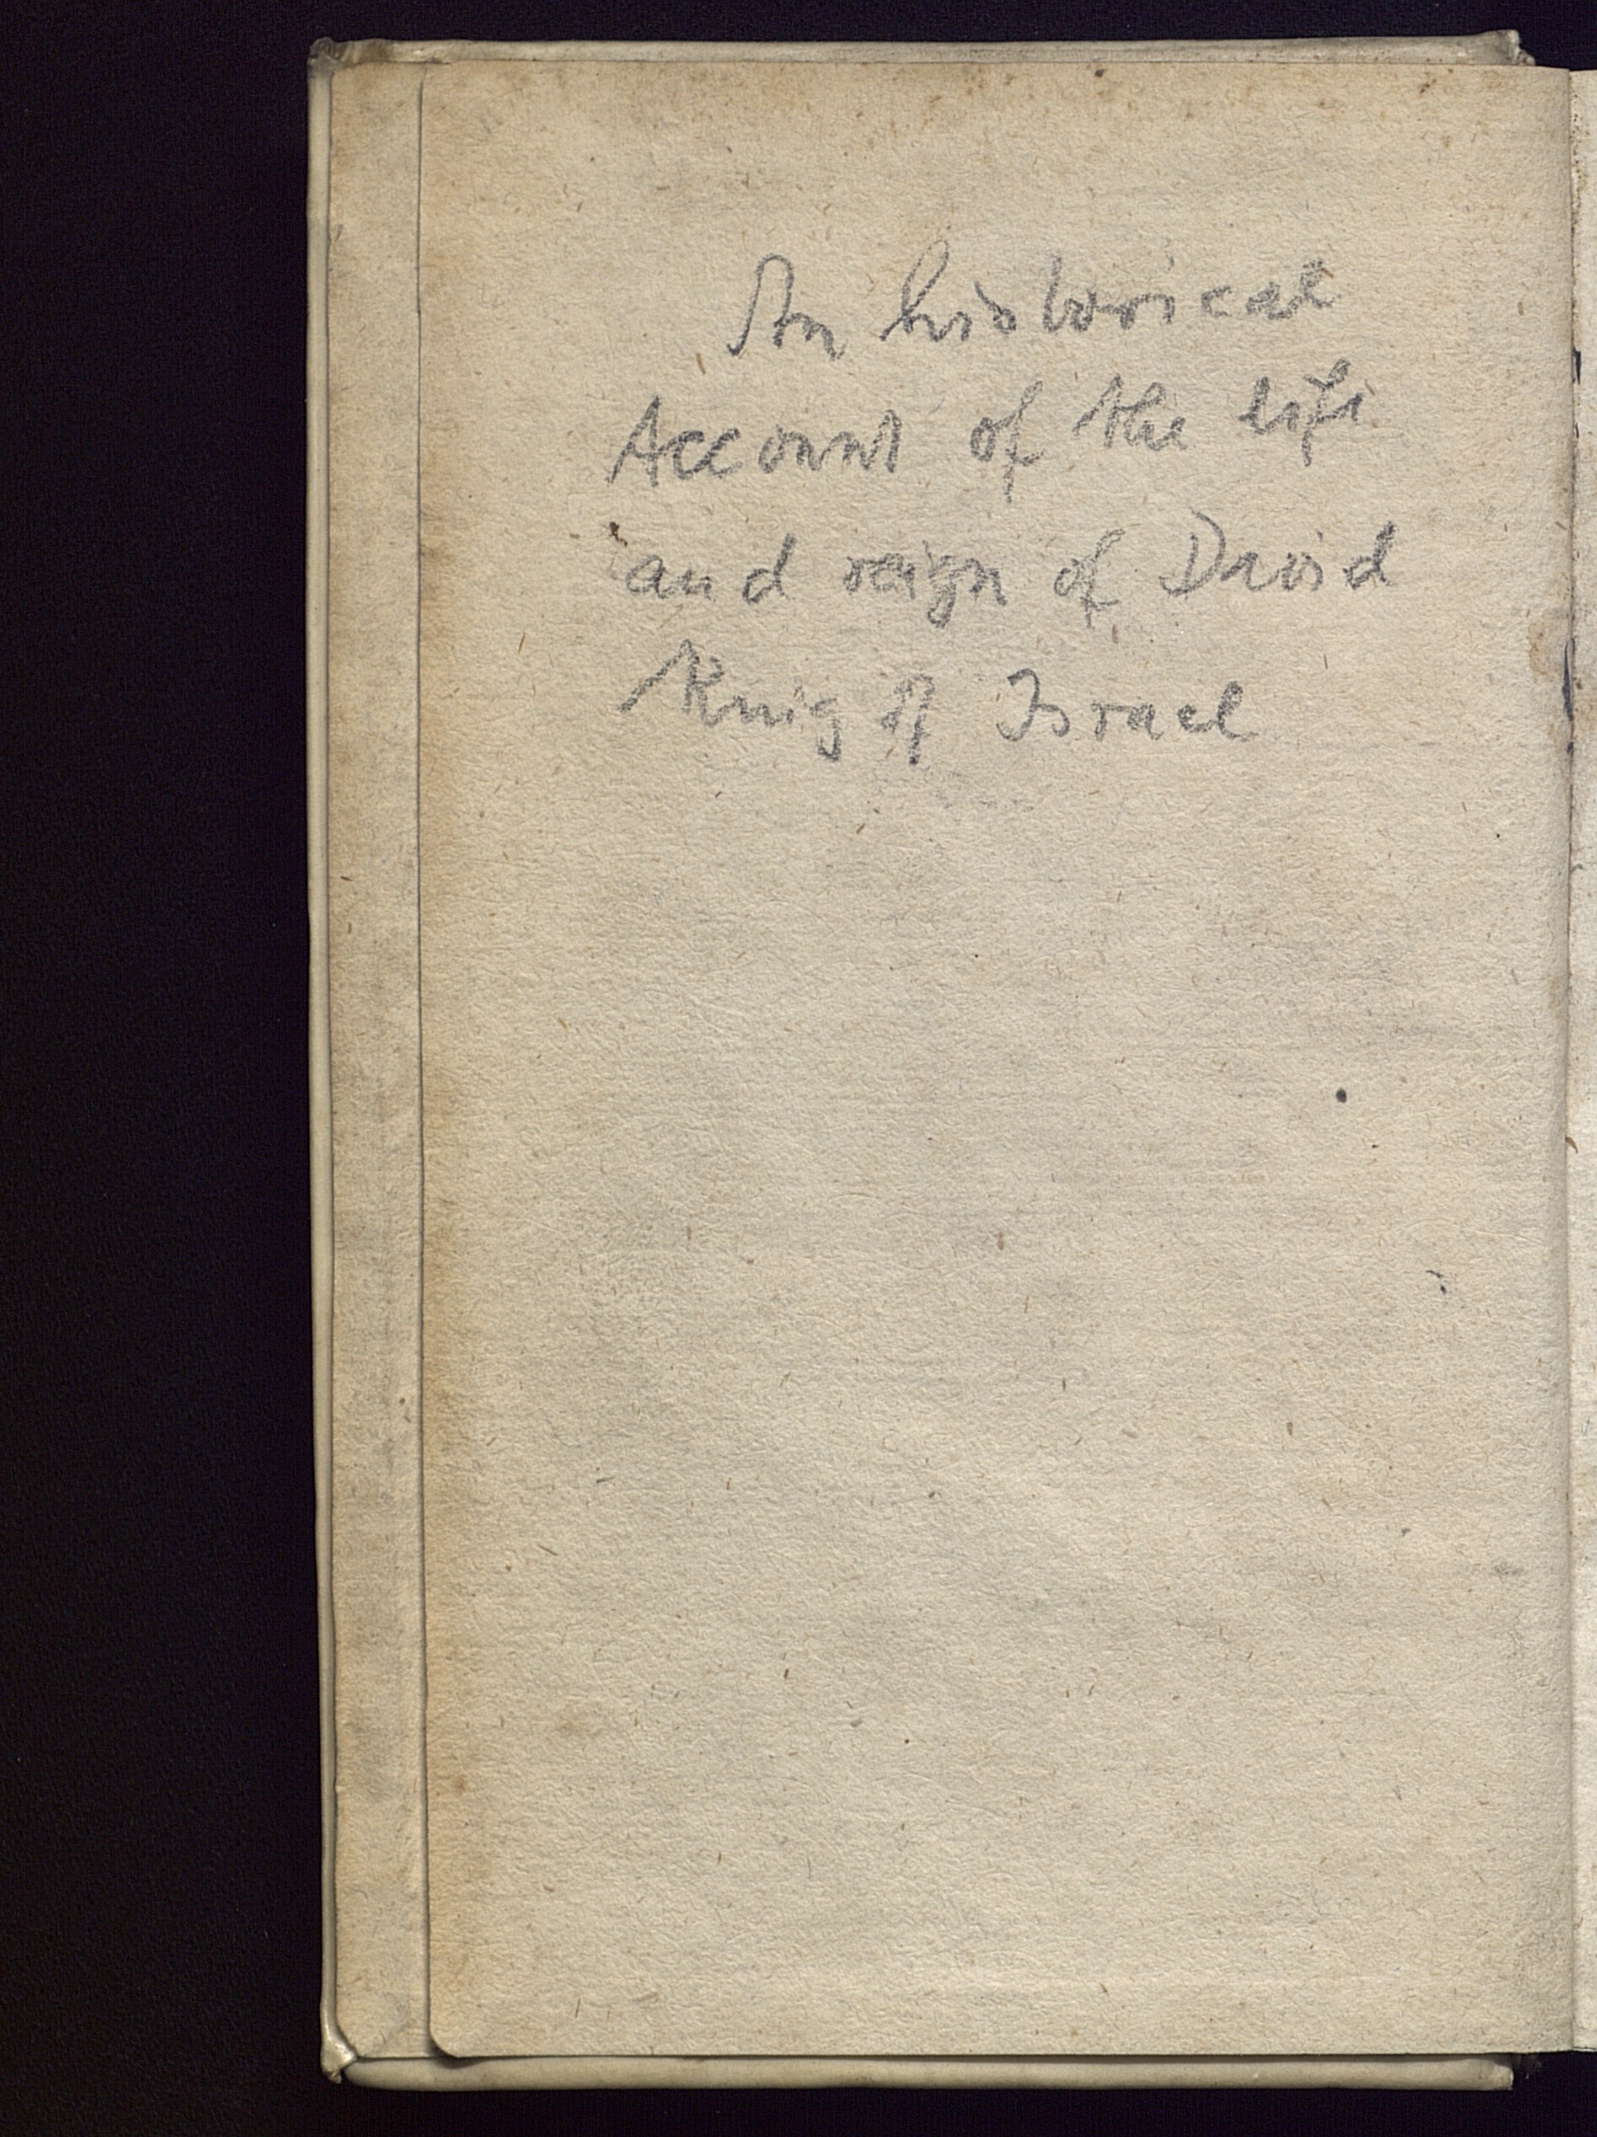 An historical
Account of the life
and reign of David
King of Israel